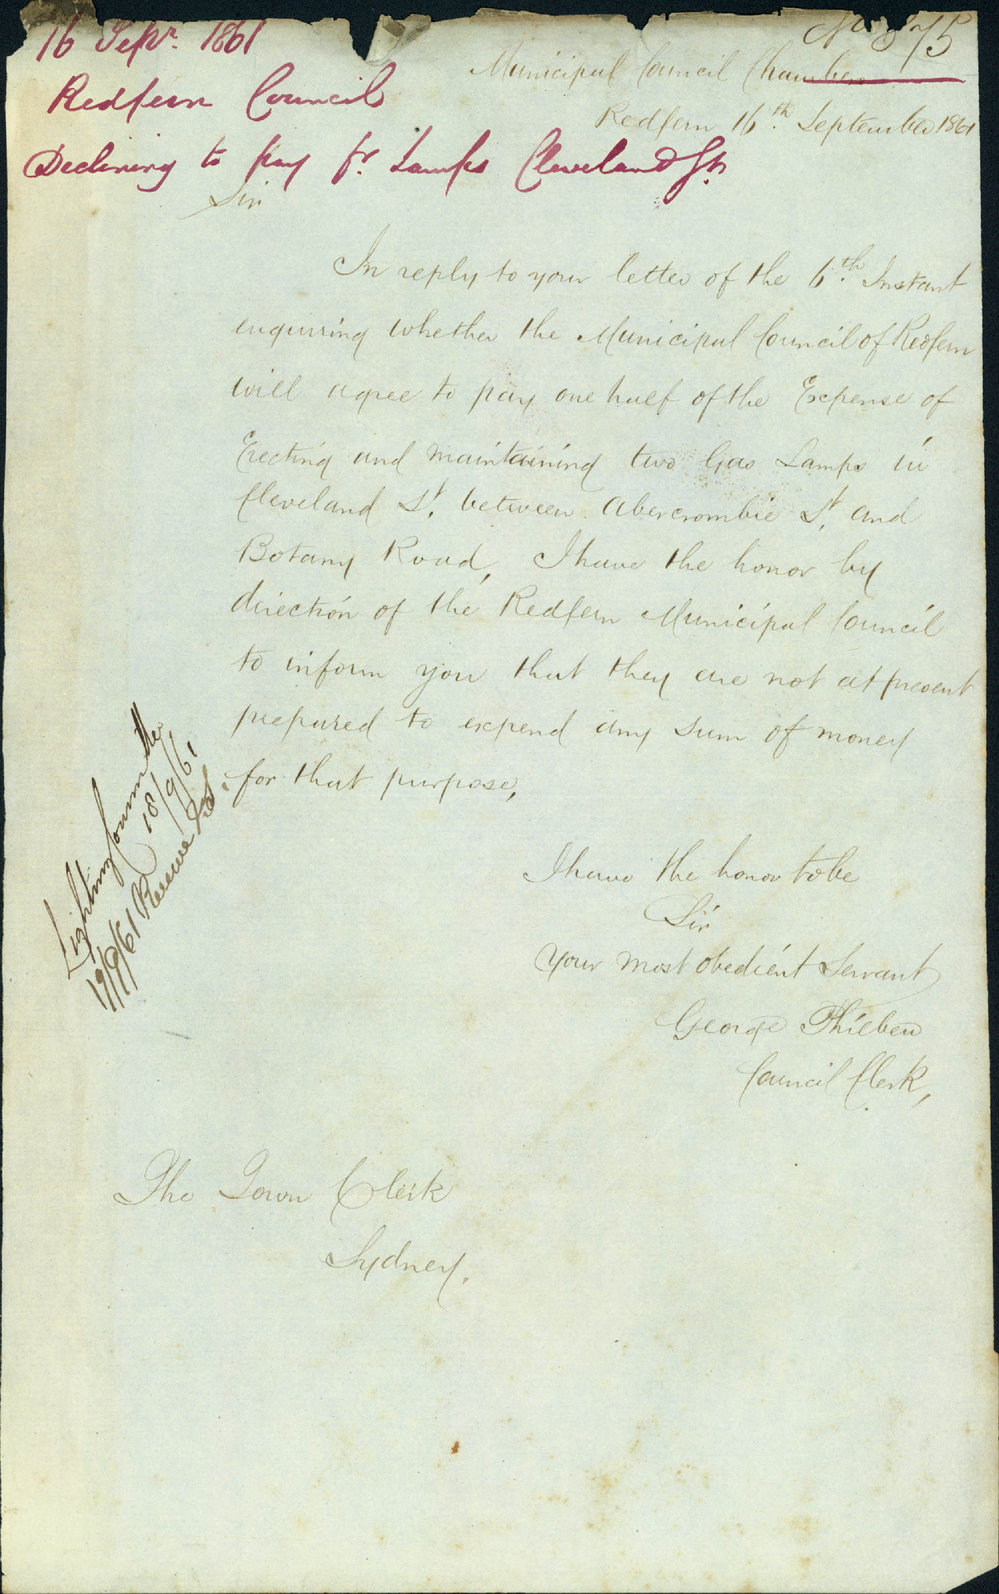 16 Sepr. 1861
Redfern Council
Declining to pay fr. Lamps Cleveland St.
75
Municipal Council Chamber
Redfern 16th. September 1861
Sir
In reply to your letter of the 6th. Instant
enquiring whether the Municipal Council of Redfern
will agree to pay one half of the Expense of
Erecting and maintaining two Gas Lamps in
Cleveland St. between Abercrombie St. and
Botany Road, I have the honor by
direction of the Redfern Municipal Council
to inform you that they are not at present
prepared to expend any sum of money
for that purpose,
I have the honor to be
Sir
Your most obedient Servant
George Thieben
Council Clerk,
The Town Clerk
Sydney.
Lighting Committee
18/9/61
19/9/61